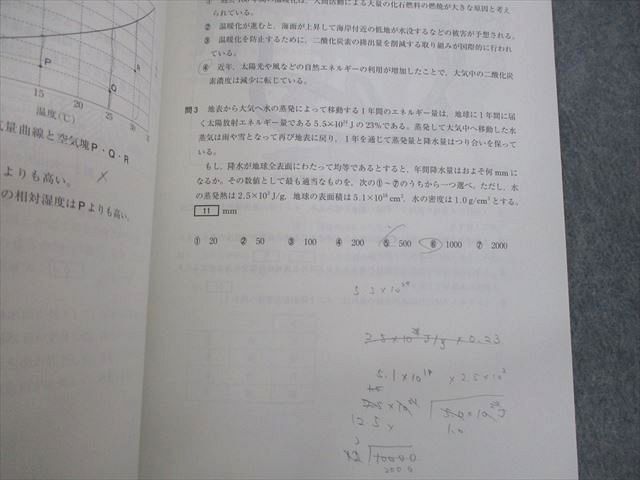 15
20
25
温度(℃)
P
Q
R
気量曲線と空気塊P・Q・R
よりも高い。
の相対湿度はPよりも高い。
られている。
② 温暖化が進むと、海面が上昇して海岸付近の低地が水没するなどの被害が予想される。
③ 温暖化を防止するために、二酸化炭素の排出量を削減する取り組みが国際的に行われ
ている。
④ 近年、太陽光や風などの自然エネルギーの利用が増加したことで、大気中の二酸化炭
素濃度は減少に転じている。
問3 地表から大気へ水の蒸発によって移動する1年間のエネルギー量は、地球に1年間に届
く太陽放射エネルギー量である5.5×10²⁴Jの23%である。蒸発して大気中へ移動した水
蒸気は雨や雪となって再び地表に戻り、1年を通じて蒸発量と降水量はつり合いを保って
いる。
もし、降水が地球全表面にわたって均等であるとすると、年間降水量はおよそ何mmに
なるか。その数値として最も適当なものを、次の①~⑦のうちから一つ選べ。ただし、水
の蒸発熱は2.5×10³J/g、地球の表面積は5.1×10¹⁸cm²、水の密度は1.0g/cm³とする。
11 mm
① 20 ② 50 ③ 100 ④ 200 ⑤ 500 ⑥ 1000 ⑦ 2000
2.5×10 J/g × 0.23
5.1×10¹⁸ ×2.5×10³
12 5 ×
1.0
10000
2000